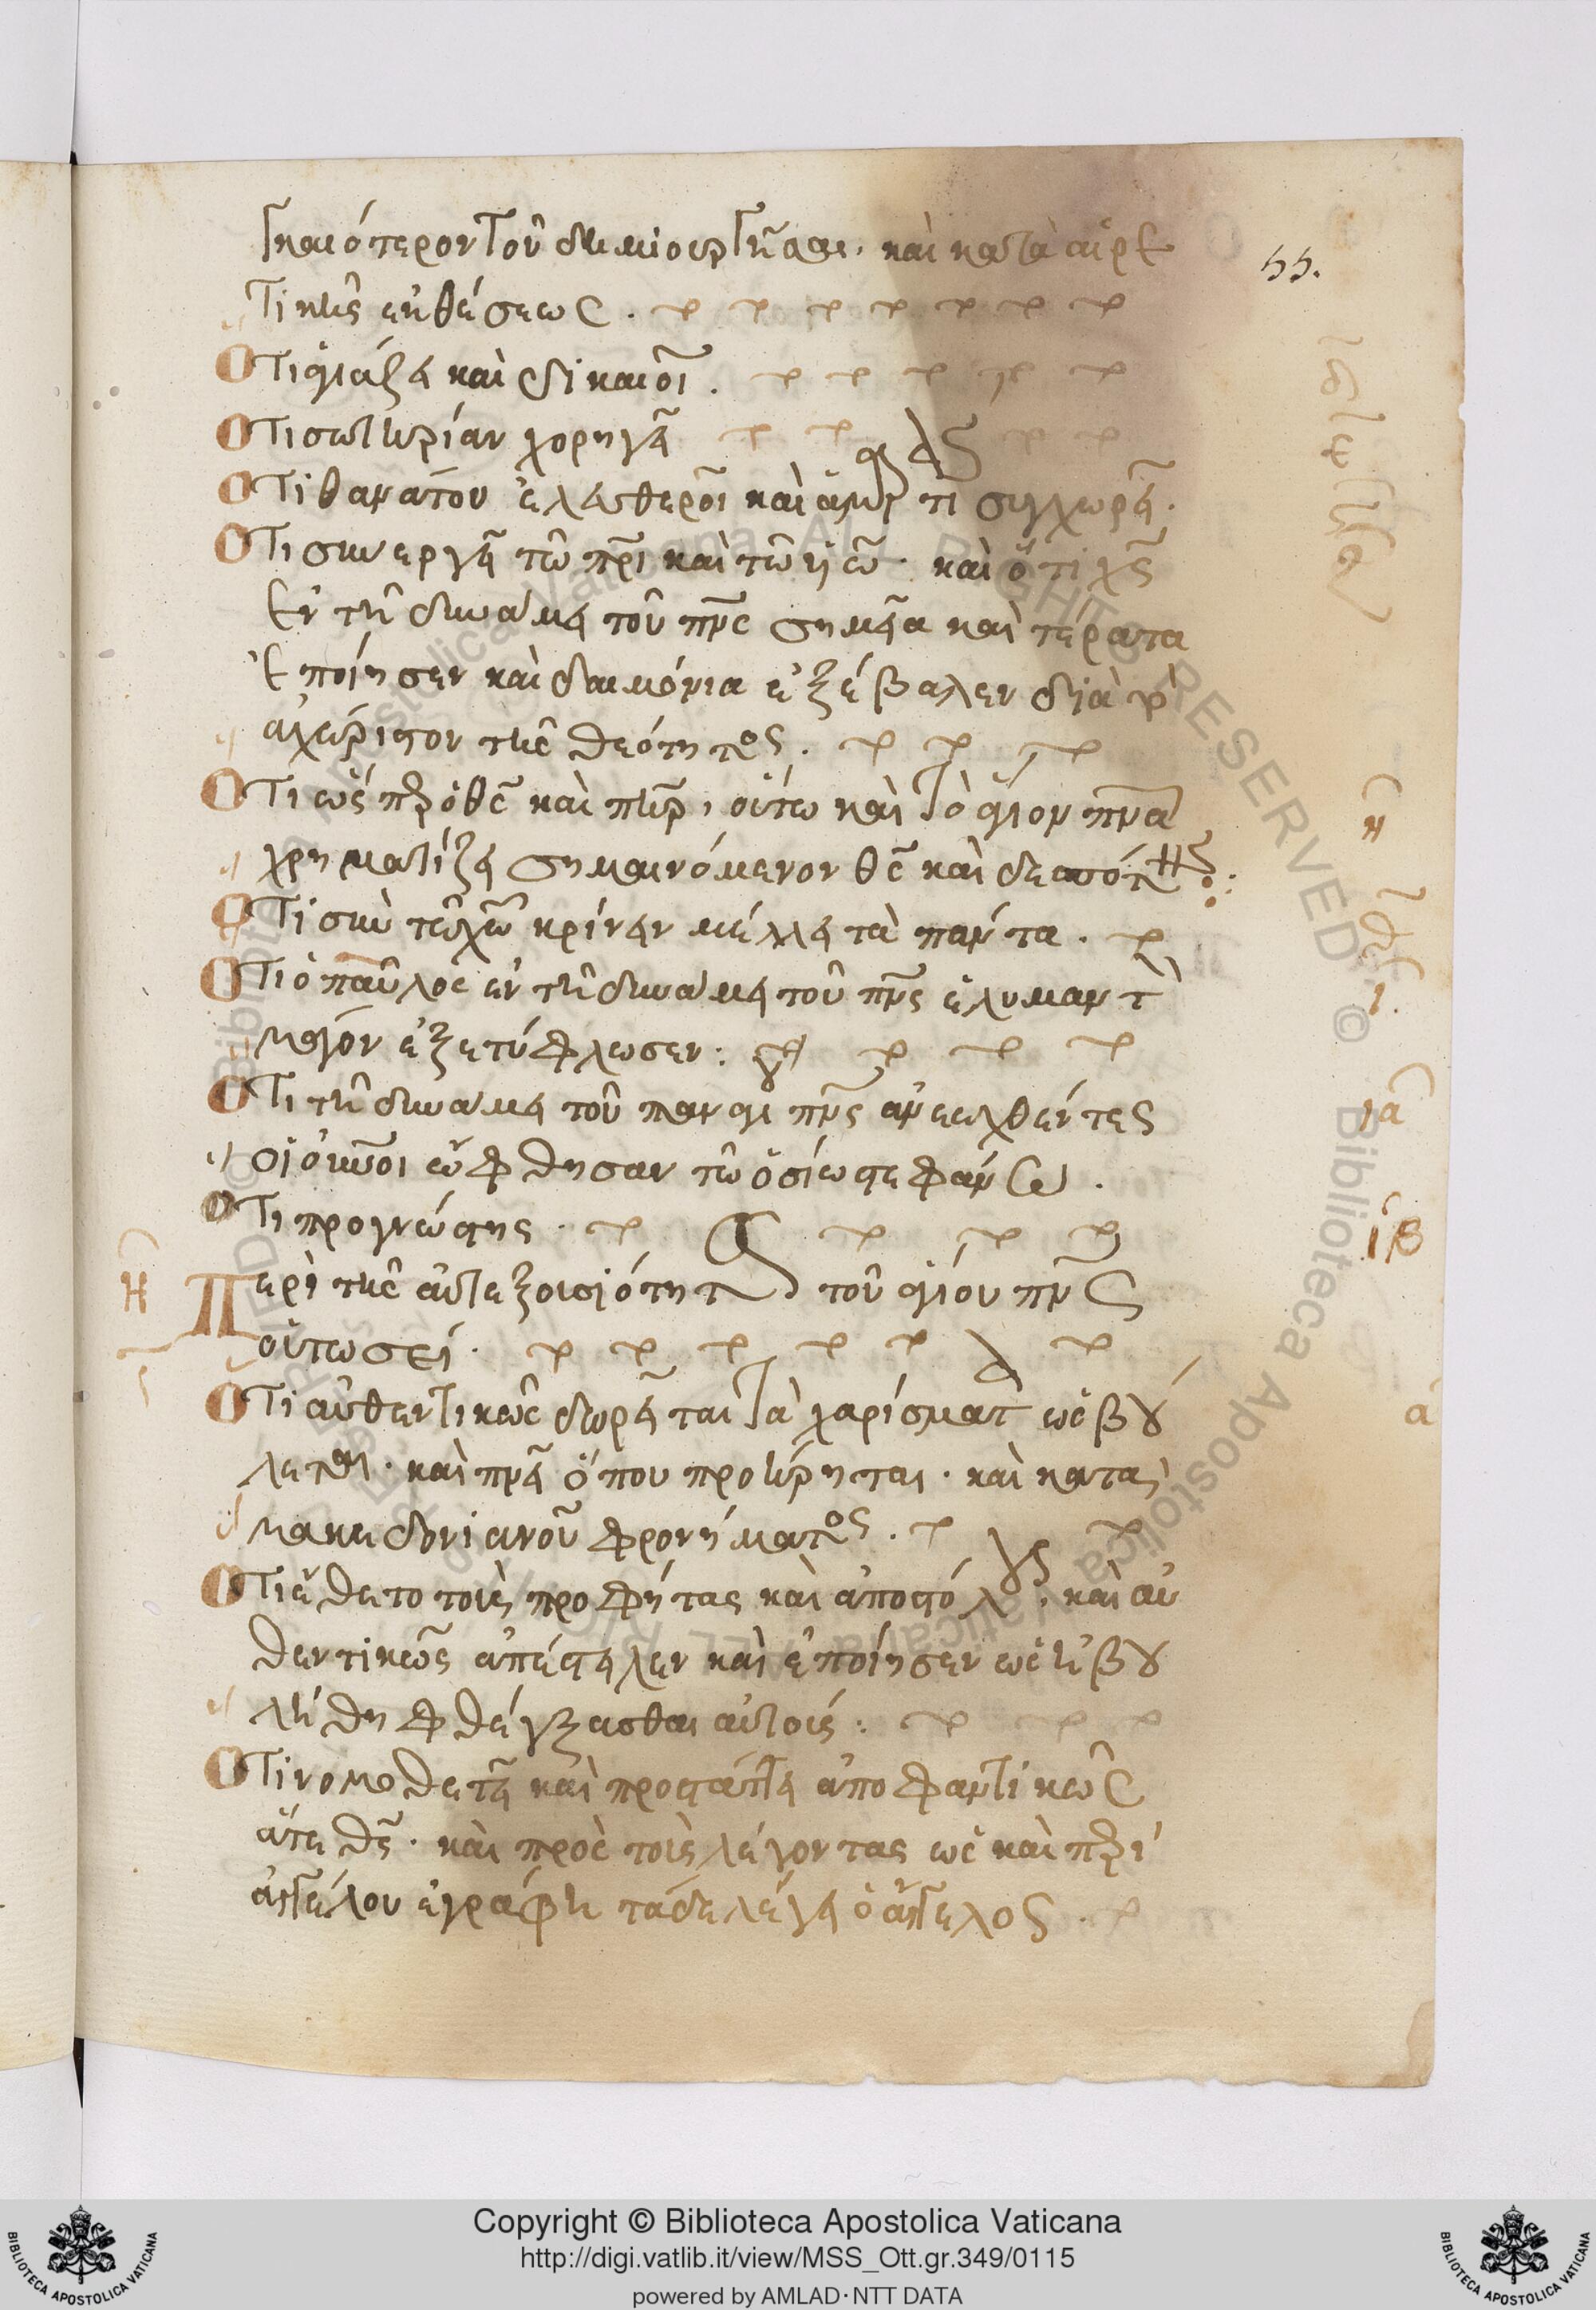 55.
γκαιότερον τοῦ δημιουργῆσαι· καὶ κατὰ αἱρε
τικῆς ἐκθέσεως.
Ὅτι ἁγιάζει καὶ δικαιοῖ.
Ὅτι σωτηρίαν χορηγεῖ
Ὅτι θανάτου ἐλευθεροῖ καὶ ἁμαρτι συγχωρεῖ.
Ὅτι συνεργεῖ τῶ πρι καὶ τῶ υἱῶ· καὶ ὅτι χς
ἐν τῆ δυνάμει τοῦ πνς σημεῖα καὶ τέρατα
ἐποίησεν καὶ δαιμόνια ἐξέβαλεν διὰ τὸ
ἀχώριστον τῆς θεότητος.
Ὅτι ὡς πρ ὁ θς καὶ πηρ, οὕτω καὶ τὸ ἅγιον πνα
χρηματίζει σημαινόμενον θς καὶ δεσπότης:
Ὅτι σὺν τῶ χω κρίνειν μέλλει τὰ πάντα.
Ὅτι ὁ παῦλος ἐν τῆ δυνάμει τοῦ πνς ἐλυμαν τὸ
μάγον ἐξετύφλωσεν:
Ὅτι τῆ δυνάμει τοῦ παναγι πνς ἀνεωχθέντες
οἱ οὐνοι ὤφθησαν τῶ ὁσίω στεφάνω.
Ὅτι προγνώστης.
Περὶ τῆς αὐτεξουσιότητος τοῦ ἁγίου πνς
οὕτωσεί.
Ὅτι αὐθεντικῶς δωρεῖται τὰ χαρίσματα ὡς βού
λεται. καὶ πνεῖ ὅπου προήρηται. καὶ κατὰ
μακεδονιανοῦ φρονήματος.
Ὅτι ἔθετο τοὺς προφήτας καὶ ἀποστόλους, καὶ αὐ
θεντικῶς ἀπέστειλεν καὶ ἐποίησεν ὡς ἠβου
λήθη φθέγξασθαι αὐτούς:
Ὅτι νομοθετεῖ καὶ προστάττει ἀποφαντικῶς
ἅτε θς. καὶ πρὸς τοὺς λέγοντας ὡς καὶ περὶ
ἀγγέλου ἐγράφη τάδε λέγει ὁ ἄγγελος.
η
ι
ια
ιβ
Η
α
Copyright © Biblioteca Apostolica Vaticana
http://digi.vatlib.it/view/MSS_Ott.gr.349/0115
powered by AMLAD·NTT DATA
BIBLIOTECA APOSTOLICA VATICANA
BIBLIOTECA APOSTOLICA VATICANA